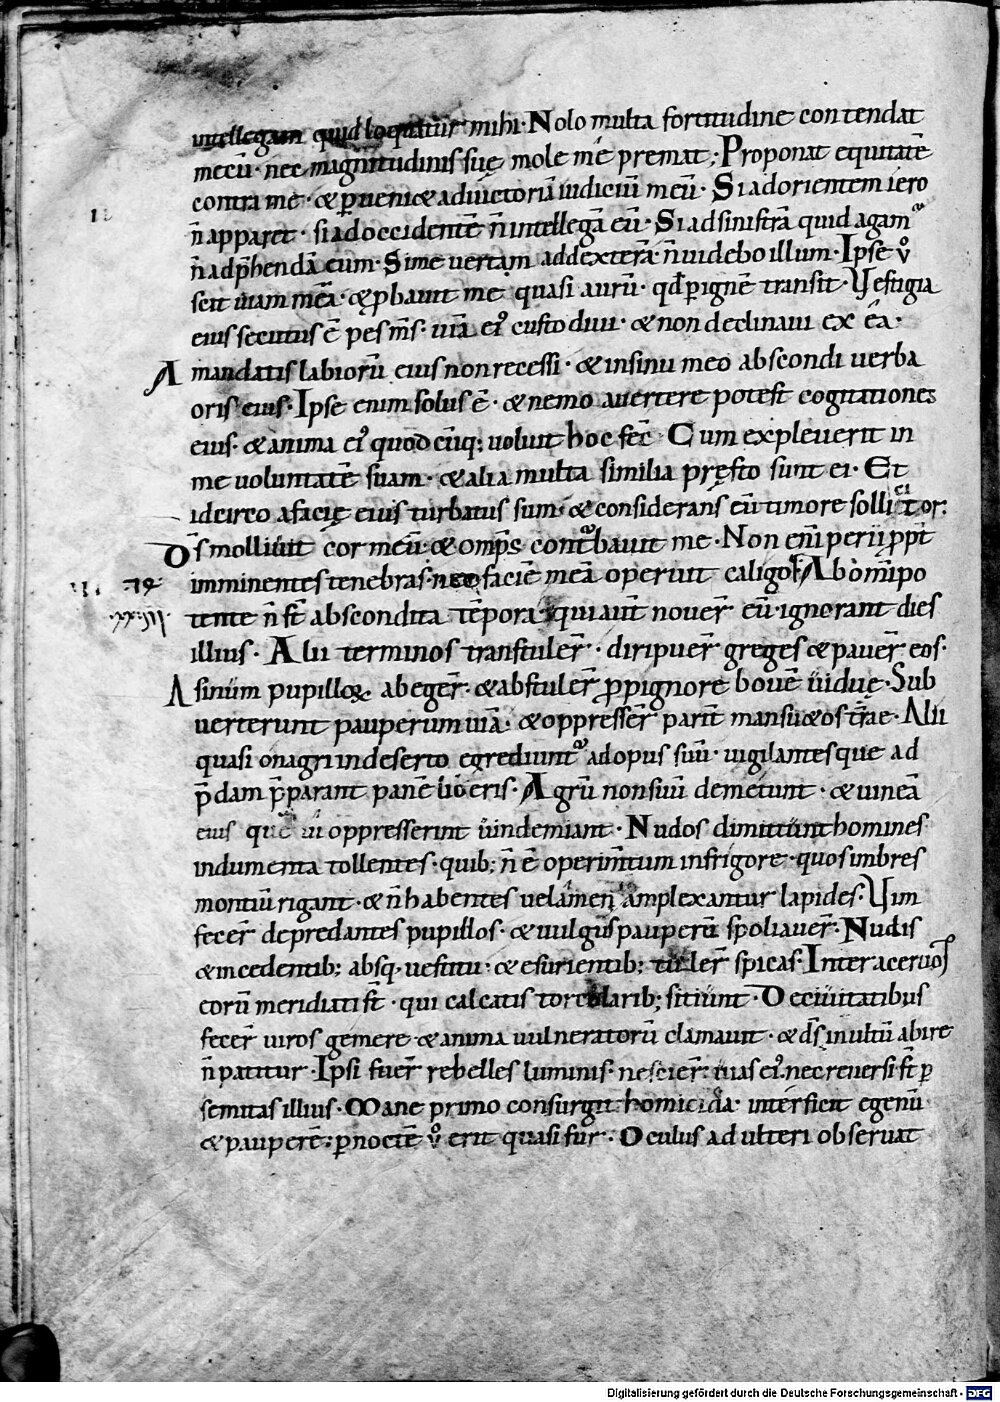 intellegam quid loquatur mihi · Nolo multa fortitudine contendat
mecū · nec magnitudinis suę mole me premat ; Proponat equitatē
contra me · & ꝑueniꝫ ad uictoriā iudiciū meū · Si ad orientem iero
n̄ apparet · si ad occidentē n̄ intellegā eū · Si ad sinistrā quid agam
n̄ adp̄hendā eum · Si me vertam ad dexterā n̄ uidebo illum · Ipse v̊
scit uiam mēa · & ꝓbauit me quasi aurū · qđ ꝑ ignē transit · Vestigia
eius secutus ē pes ms̄ · uiā ei9 custodiui · & non declinaui ex ea ·
A mandatis labiorū eius non recessi · & in sinu meo abscondi uerba
oris eius · Ipse enim solus ē · & nemo auertere potest cogitationes
eius · & anima ei9 quod cūq; uoluit hoc fec̄ · Cum expleuerit in
me uoluntatē suam · & alia multa similia pręsto sunt ei · Et
idcirco a facię eius turbatus sum · & considerans eū timore sollicitor :
Ds̄ molliuit cor meū · & omp̄s conturbauit me · Non enī perii ꝓpt̄
imminentes tenebras · nec faciē meā operuit caligo · Ab om̄ipo
.xx.iiii. tente n̄ st̄ abscondita tēpora · qui aut̄ nouer̄ eū · ignorant dies
illius · Alii terminos transtuler̄ · diripuer̄ greges & pauer̄ eos ·
Asinum pupilloꝝ abeger̄ · & abstuler̄ ꝓ pignore bouē uiduę · Sub
verterunt pauperum uiā · & oppresser̄ parit̄ mansu&os tr̄ae · Alii
quasi onagri in deserto egrediunt̉ ad opus suū · vigilantesque ad
p̄dam p̄parant panē liberis · Agrū non suū demetunt · & uineā
eius quē ui oppresserint uindemiant · Nudos dimittunt homines
indumenta tollentes · quib; n̄ ē operimtum in frigore · quos imbres
montiū rigant · & n̄ habentes uelamen amplexantur lapides · Vim
fecer̄ depredantes pupillos · & uulgus pauperū spoliauer̄ · Nudis
& incedentib; absq; uestitu · & esurientib; tuler̄ spicas · Inter aceruos
eorū meridiati st̄ · qui calcatis torcularib; sitiunt · De ciuitatibus
fecer̄ uiros gemere · & anima uulneratorū clamauit · & ds̄ inultū abire
n̄ patitur · Ipsi fuer̄ rebelles luminis · nescier̄ uias ei9 · nec reuersi st̄ ꝑ
semitas illius · Mane primo consurgit homicida · interficit egenū
& pauperē ; ꝑ noctē v̊ erit quasi fur · Oculus adulteri obseruat
Digitalisierung gefördert durch die Deutsche Forschungsgemeinschaft - DFG